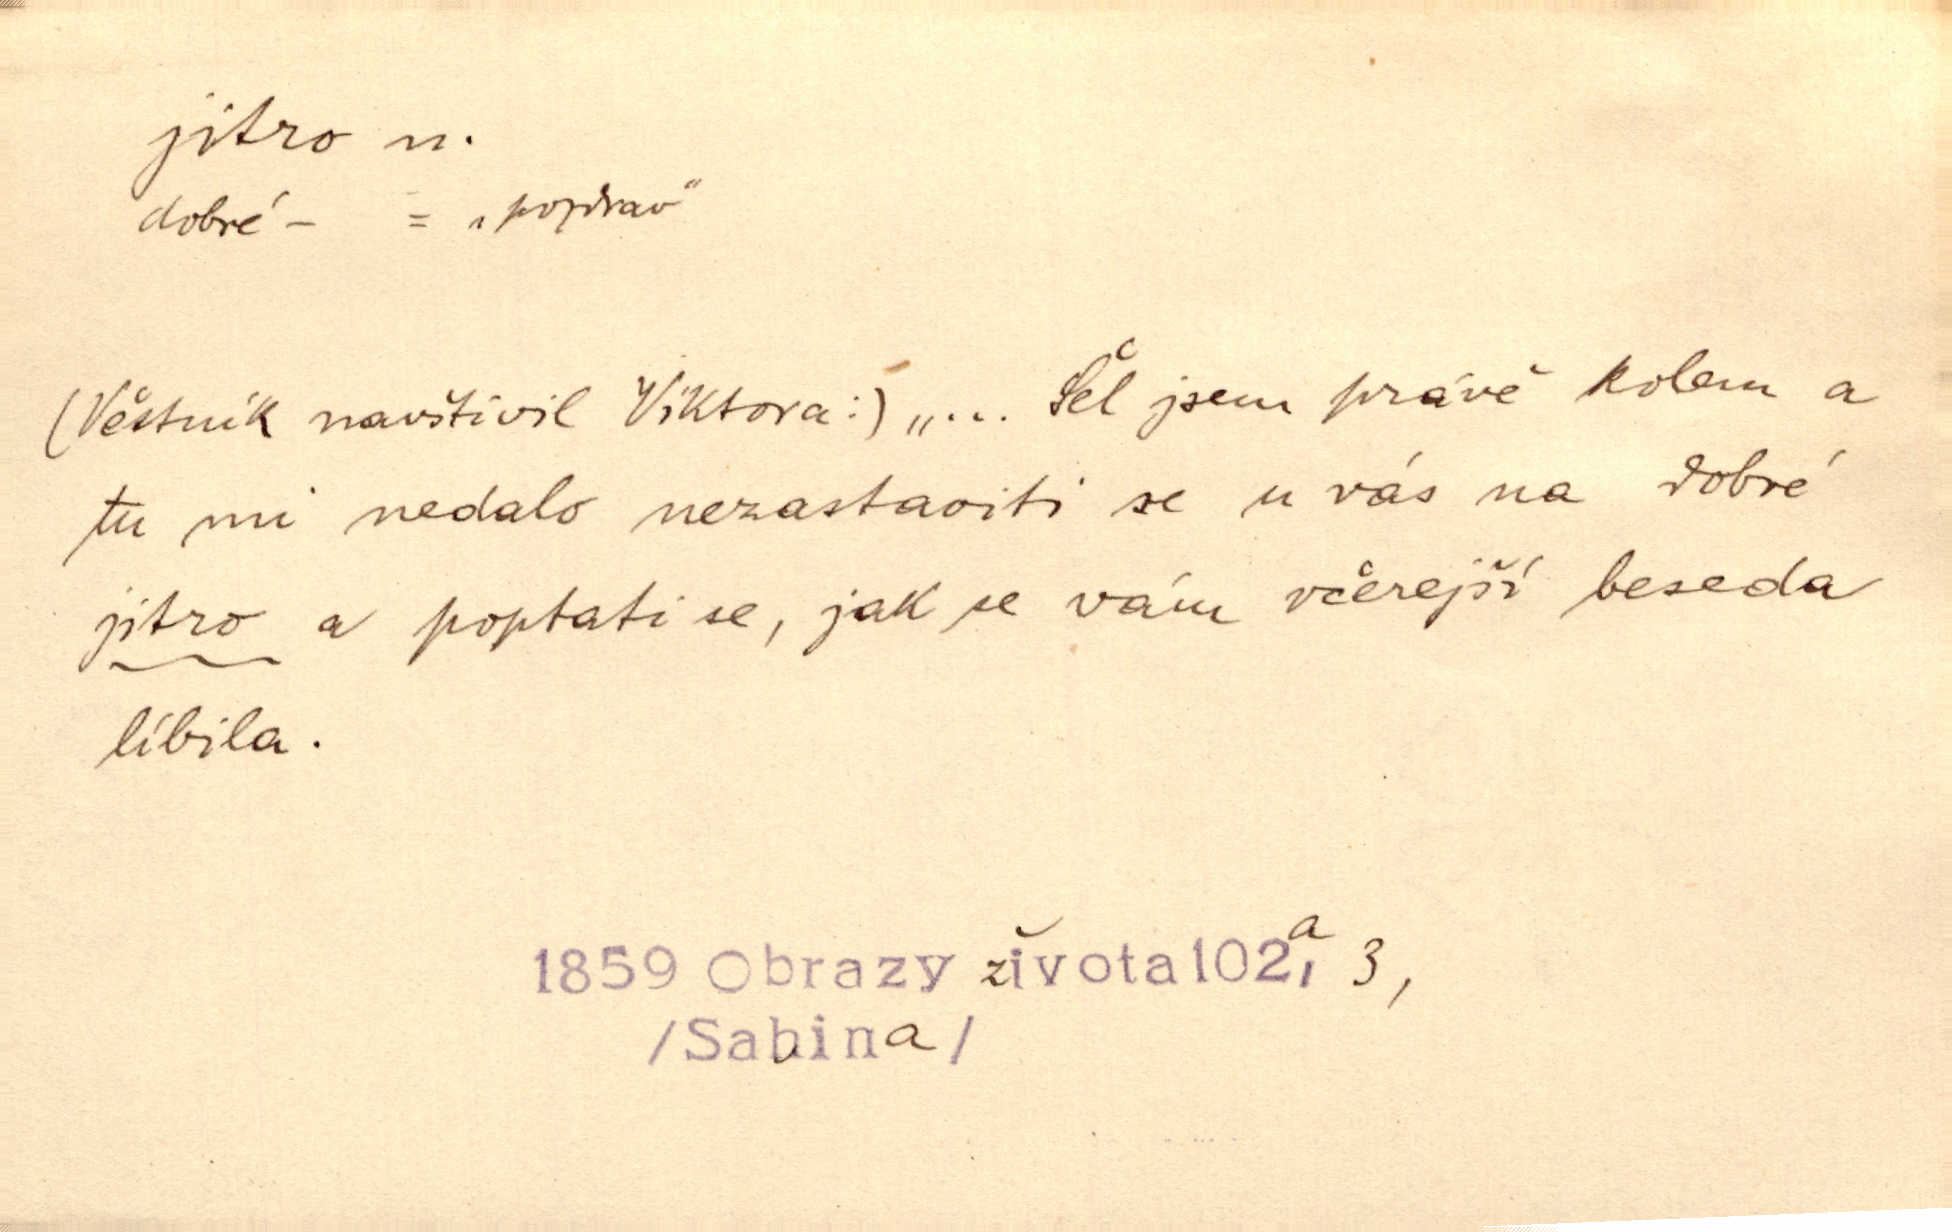 jitro n.
dobré - = „pozdrav“
(Věstník navštívil Viktora:) „... Šel jsem právě kolem a
tu mi nedalo nezastaviti se u vás na dobré
jitro a poptati se, jak se vám včerejší beseda
líbila.
1859 Obrazy života 102, a 3,
/Sabina/